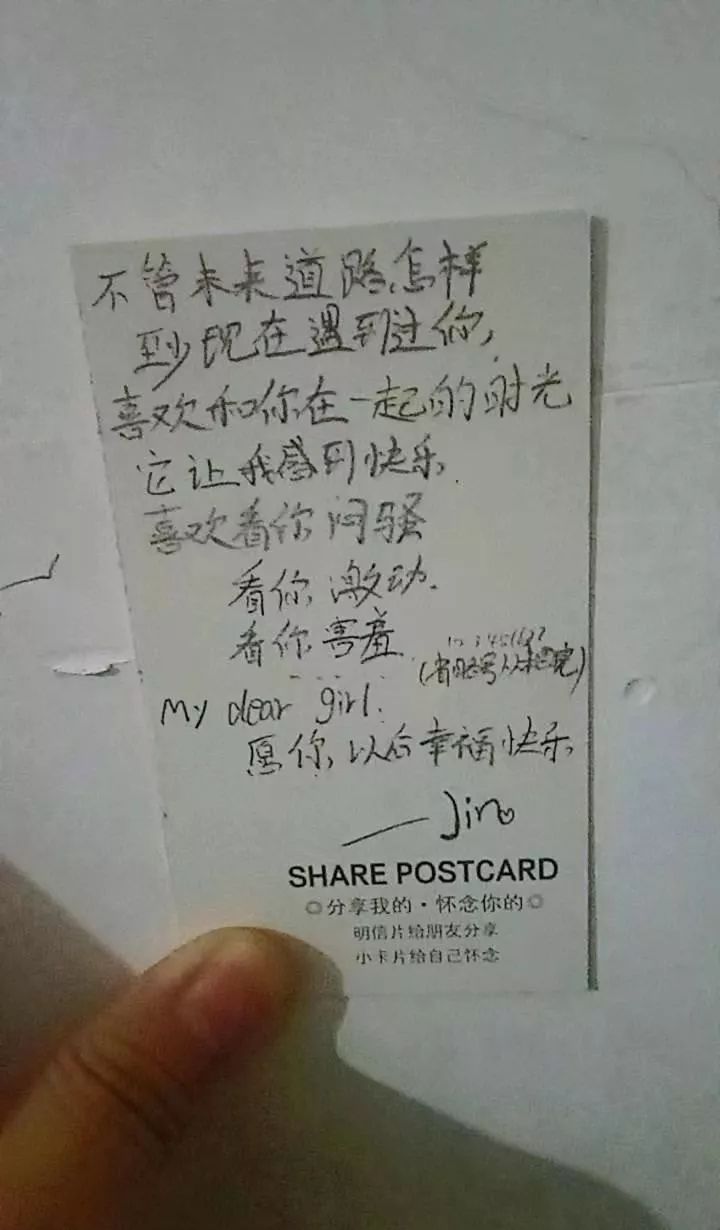 不管未来道路怎样
至少现在遇到过你,
喜欢和你在一起的时光
它让我感到快乐.
喜欢看你闷骚
看你激动.
看你害羞
(省略号以
My dear girl.
愿你以后幸福快乐
——Jin
SHARE POSTCARD
◎分享我的·怀念你的◎
明信片给朋友分享
小卡片给自己怀念